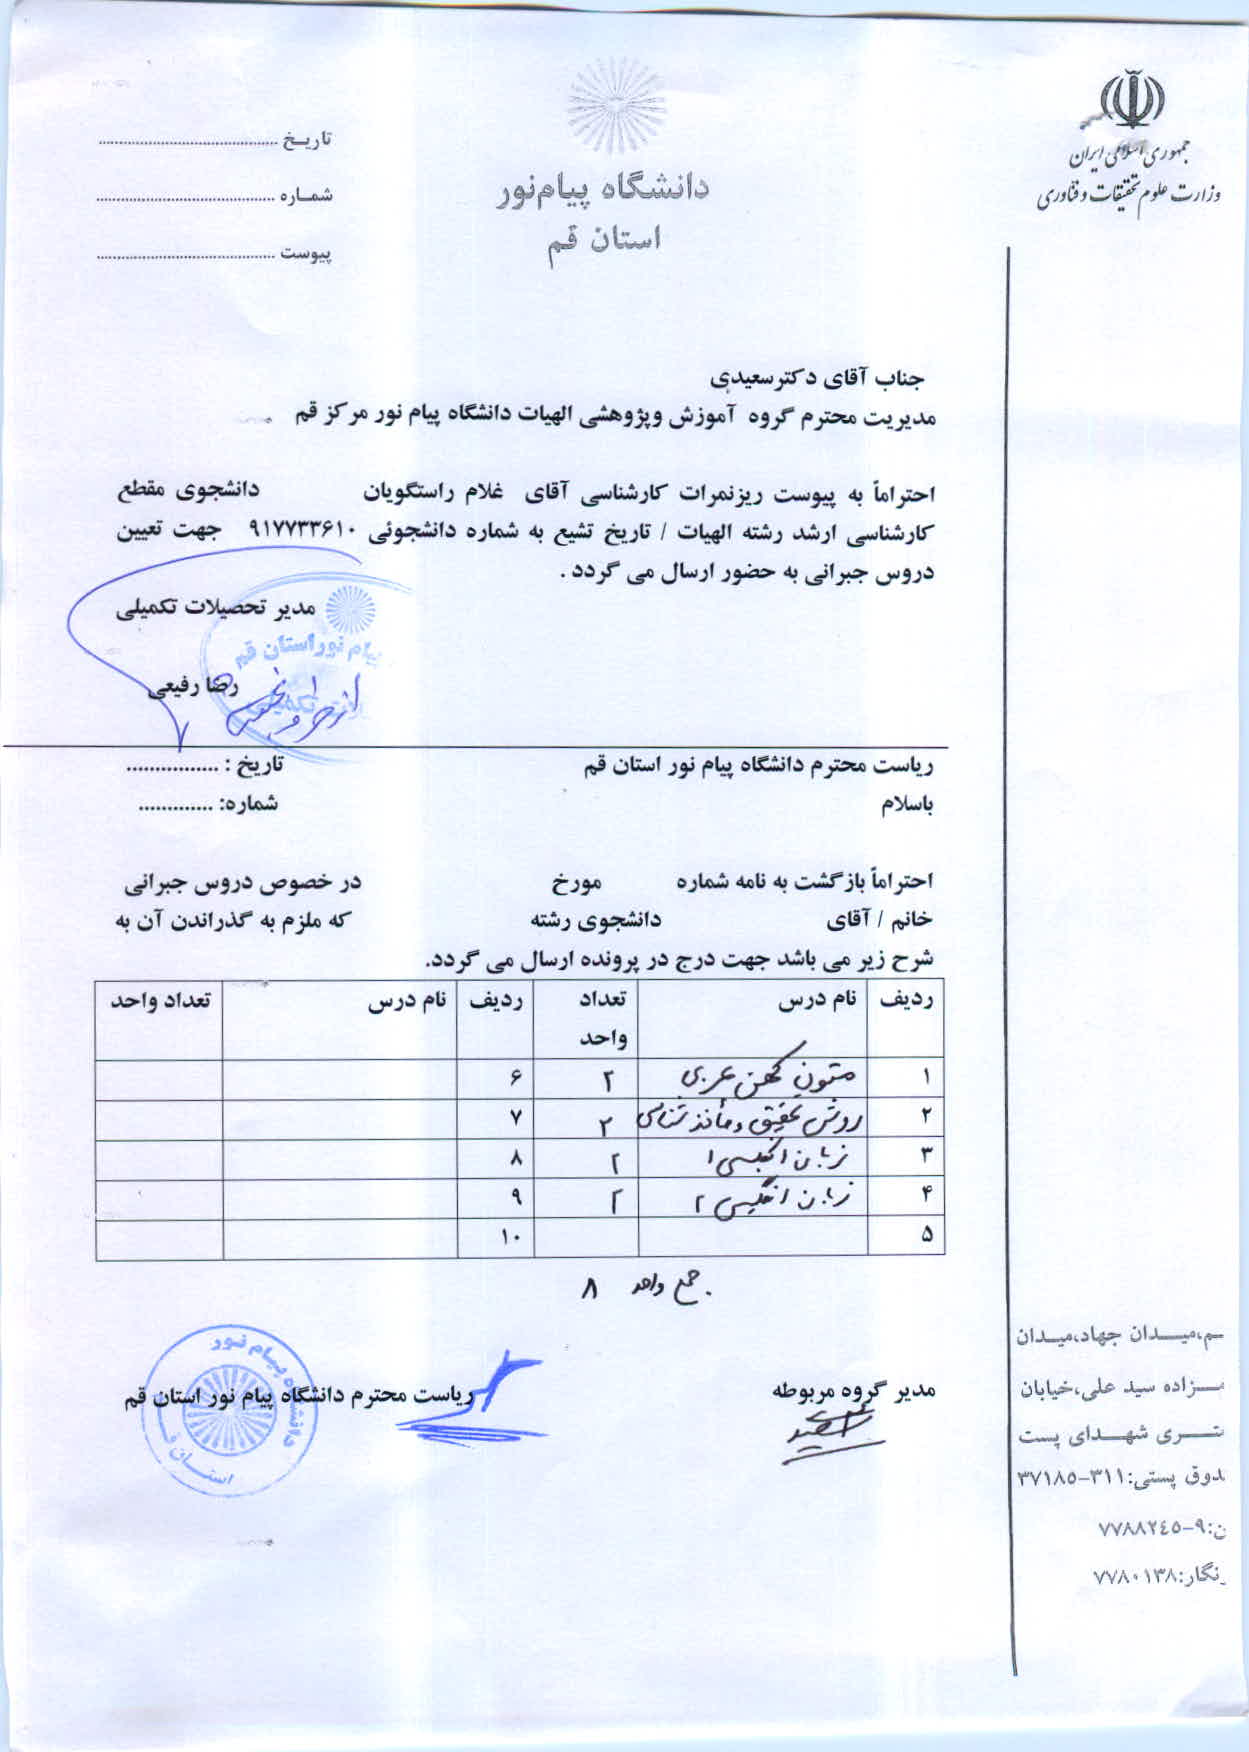 جمهوری اسلامی ایران
وزارت علوم تحقیقات و فناوری
دانشگاه پیام‌نور
استان قم
تاریـخ ............................................
شمـاره ............................................
پیوست ............................................
جناب آقای دکترسعیدی
مدیریت محترم گروه آموزش وپژوهشی الهیات دانشگاه پیام نور مرکز قم
احتراماً به پیوست ریزنمرات کارشناسی آقای غلام راستگویان دانشجوی مقطع
کارشناسی ارشد رشته الهیات / تاریخ تشیع به شماره دانشجوئی ۹۱۷۷۳۳۶۱۰ جهت تعیین
دروس جبرانی به حضور ارسال می گردد .
مدیر تحصیلات تکمیلی
پیام نور استان قم
رضا رفیعی
ریاست محترم دانشگاه پیام نور استان قم تاریخ : ................
باسلام شماره: .............
احتراماً بازگشت به نامه شماره مورخ در خصوص دروس جبرانی
خانم / آقای دانشجوی رشته که ملزم به گذراندن آن به
شرح زیر می باشد جهت درج در پرونده ارسال می گردد.
ردیف نام درس تعداد واحد ردیف نام درس تعداد واحد
۱ متون کهن عربی ۲ ۶
۲ روش تحقیق و مأخذ شناسی ۲ ۷
۳ زبان انگلیسی ۱ ۲ ۸
۴ زبان انگلیسی ۲ ۲ ۹
۵ ۱۰
جمع واحد ۸
مدیر گروه مربوطه ریاست محترم دانشگاه پیام نور استان قم
دانشگاه پیام نور
استان قم
ـم،میـــدان جهاد،میـدان
ـزاده سید علی،خیابان
ـری شهـدای پست
ـدوق پستی:۳۱۱-۳۷۱۸۵
ن:۹-۷۷۸۸۲٤۵
ـنگار:۷۷۸۰۱۳۸